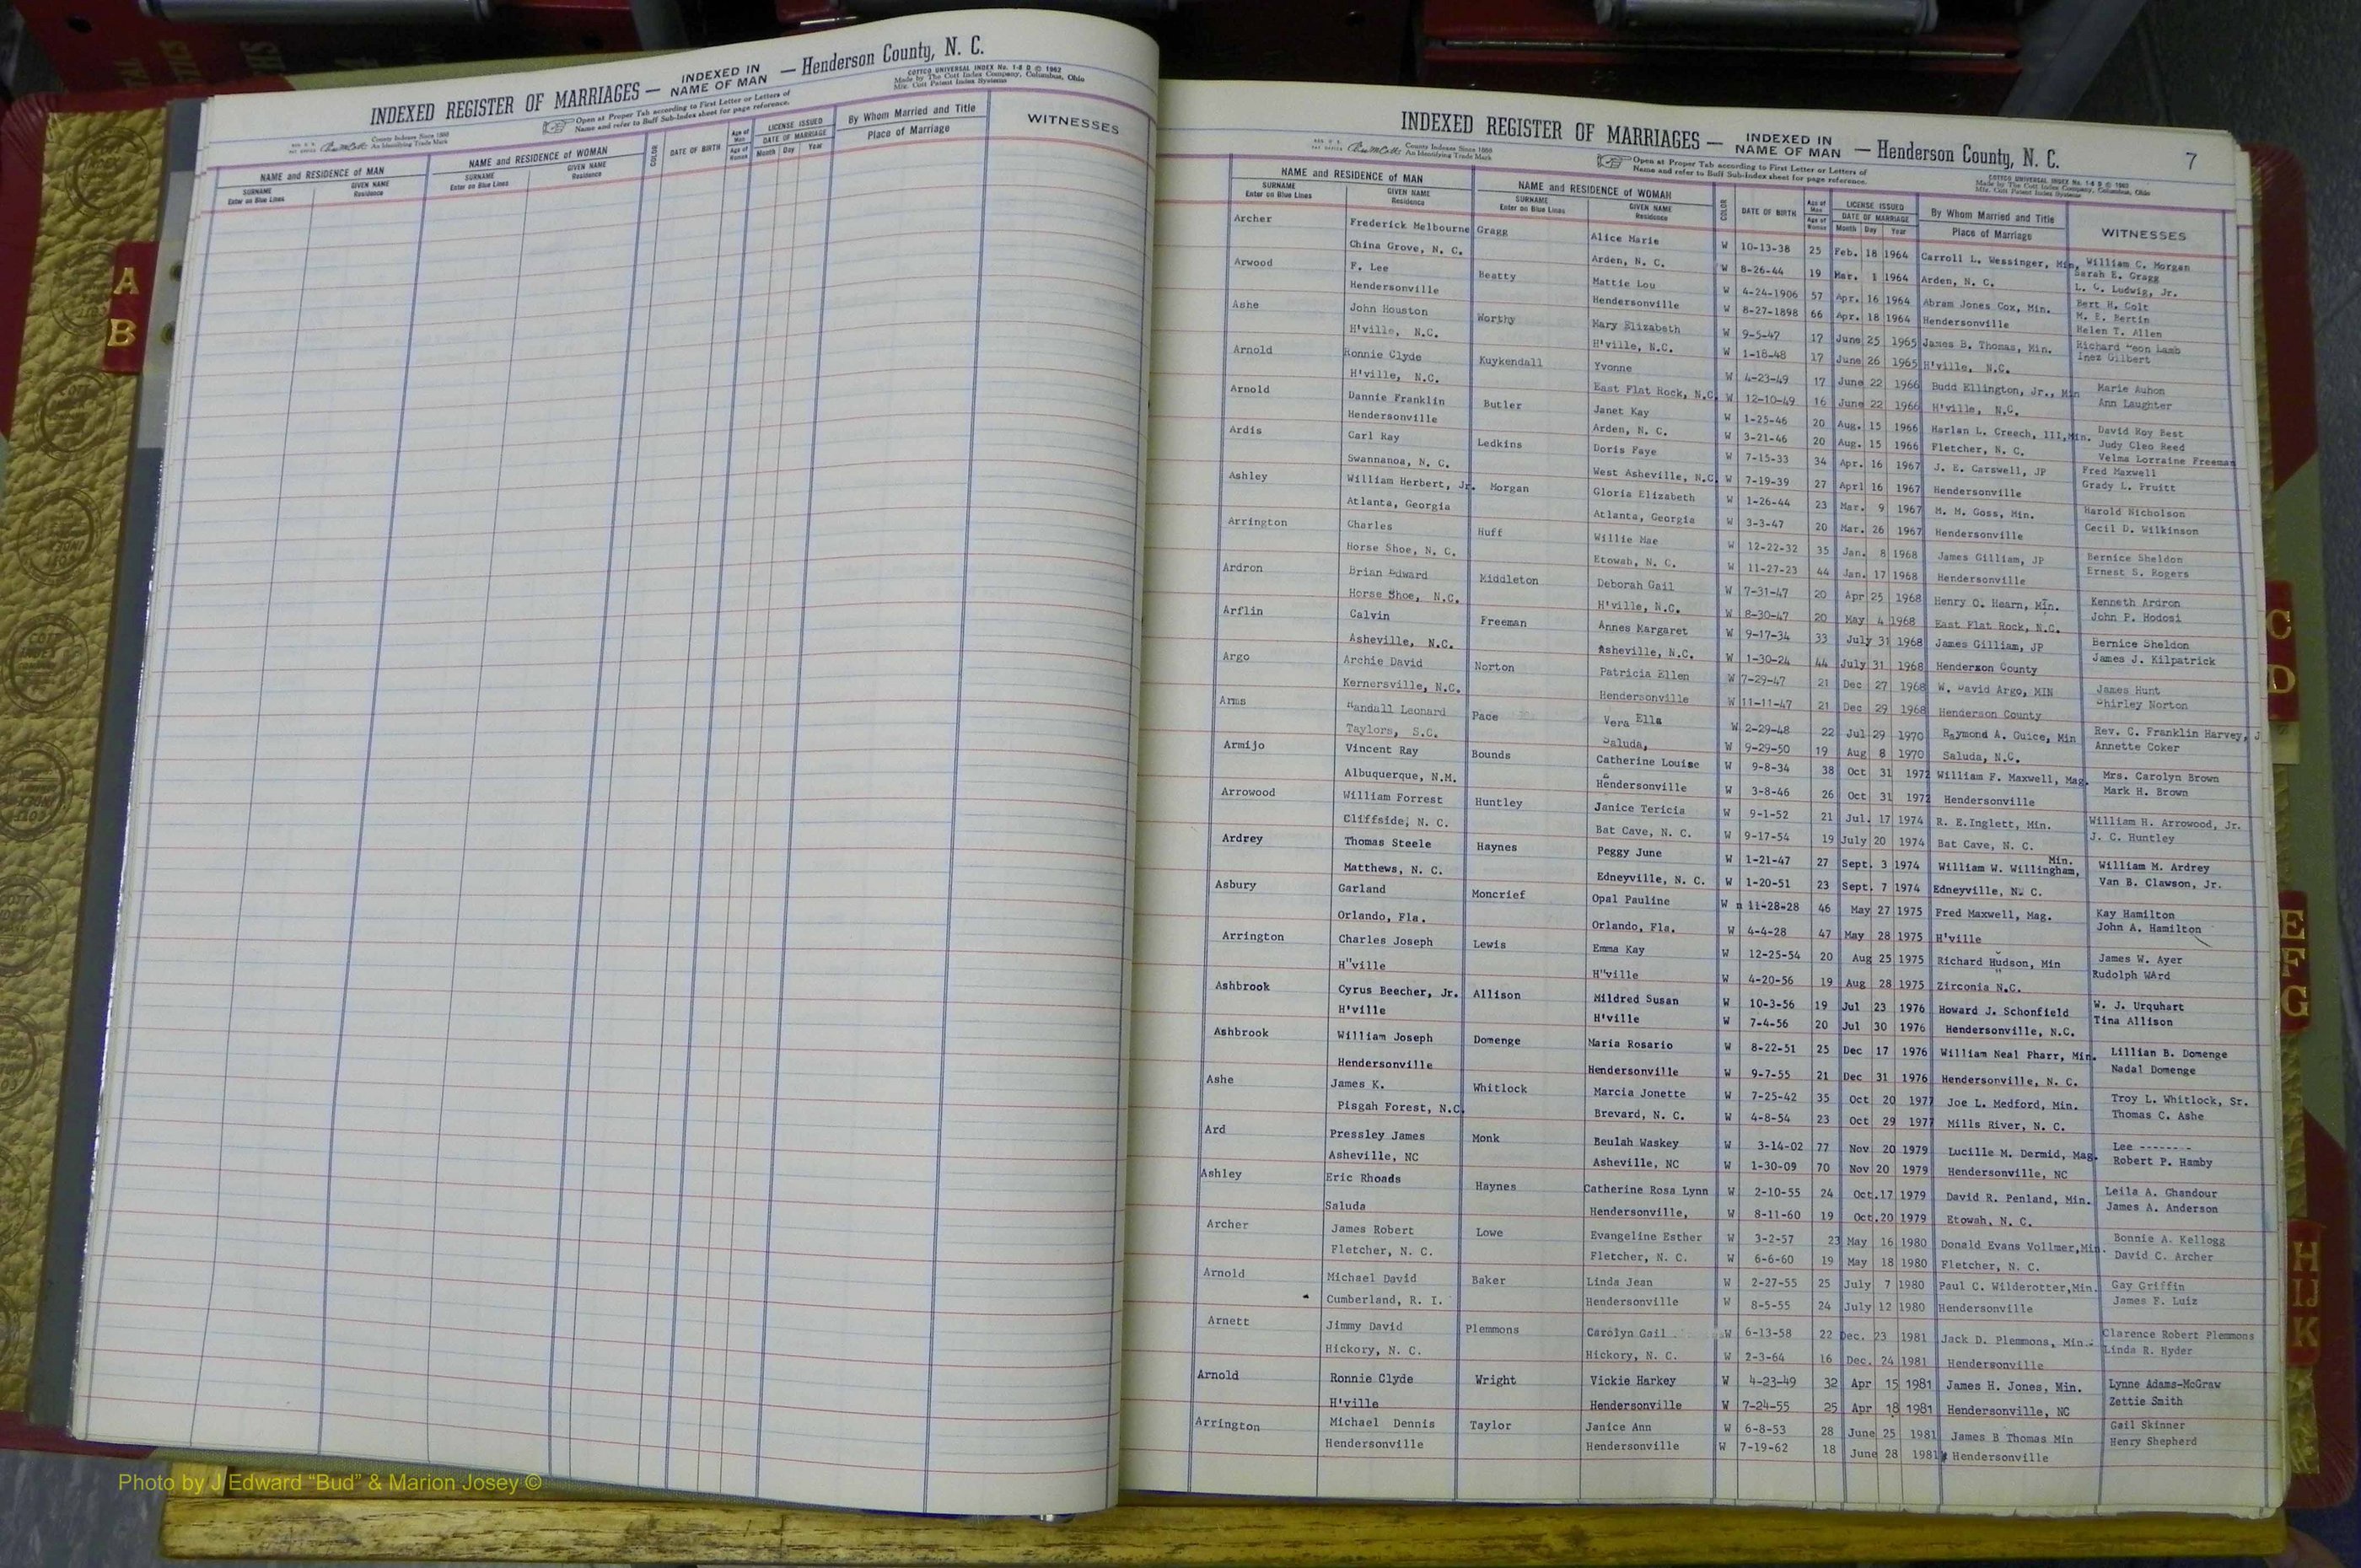 INDEXED REGISTER OF MARRIAGES — INDEXED IN NAME OF MAN — Henderson County, N. C.
COTTCO UNIVERSAL INDEX No. 1-8 D © 1962
Made by The Cott Index Company, Columbus, Ohio
Mfr. Cott Patent Index Systems
County Indexes Since 1888
An Identifying Trade Mark
Open at Proper Tab according to First Letter or Letters of
Name and refer to Buff Sub-Index sheet for page reference.
NAME and RESIDENCE OF MAN NAME and RESIDENCE OF WOMAN COLOR DATE OF BIRTH Age of Man LICENSE ISSUED By Whom Married and Title WITNESSES
SURNAME GIVEN NAME SURNAME GIVEN NAME Age of Woman DATE OF MARRIAGE Place of Marriage
Enter on Blue Lines Residence Enter on Blue Lines Residence Month Day Year
A
B
INDEXED REGISTER OF MARRIAGES — INDEXED IN NAME OF MAN — Henderson County, N. C. 7
County Indexes Since 1888
An Identifying Trade Mark
Open at Proper Tab according to First Letter or Letters of
Name and refer to Buff Sub-Index sheet for page reference.
COTTCO UNIVERSAL INDEX No. 1-8 D © 1962
Made by The Cott Index Company, Columbus, Ohio
Mfr. Cott Patent Index Systems
NAME and RESIDENCE OF MAN NAME and RESIDENCE OF WOMAN COLOR DATE OF BIRTH Age of Man LICENSE ISSUED By Whom Married and Title WITNESSES
SURNAME GIVEN NAME SURNAME GIVEN NAME Age of Woman DATE OF MARRIAGE Place of Marriage
Enter on Blue Lines Residence Enter on Blue Lines Residence Month Day Year
Archer Frederick Melbourne Gragg Alice Marie W 10-13-38 25 Feb. 18 1964 Carroll L. Wessinger, Min. William C. Morgan
China Grove, N. C. Arden, N. C. W 8-26-44 19 Mar. 1 1964 Arden, N. C. Sarah E. Gragg
L. C. Ludwig, Jr.
Arwood F. Lee Beatty Mattie Lou W 4-24-1906 57 Apr. 16 1964 Abram Jones Cox, Min. Bert H. Colt
Hendersonville Hendersonville W 8-27-1898 66 Apr. 18 1964 Hendersonville M. E. Bertin
Helen T. Allen
Ashe John Houston Worthy Mary Elizabeth W 9-5-47 17 June 25 1965 James B. Thomas, Min. Richard Leon Lamb
H'ville, N.C. H'ville, N.C. W 1-18-48 17 June 26 1965 H'ville, N.C. Inez Gilbert
Arnold Ronnie Clyde Kuykendall Yvonne W 4-23-49 17 June 22 1966 Budd Ellington, Jr., Min Marie Auhon
H'ville, N.C. East Flat Rock, N.C. W 12-10-49 16 June 22 1966 H'ville, N.C. Ann Laughter
Arnold Dannie Franklin Butler Janet Kay W 1-25-46 20 Aug. 15 1966 Harlan L. Creech, III,Min. David Roy Best
Hendersonville Arden, N. C. W 3-21-46 20 Aug. 15 1966 Fletcher, N. C. Judy Cleo Reed
Velma Lorraine Freeman
Ardis Carl Ray Ledkins Doris Faye W 7-15-33 34 Apr. 16 1967 J. E. Carswell, JP Fred Maxwell
Swannanoa, N. C. West Asheville, N.C. W 7-19-39 27 Aprl 16 1967 Hendersonville Grady L. Pruitt
Ashley William Herbert, Jr. Morgan Gloria Elizabeth W 1-26-44 23 Mar. 9 1967 M. M. Goss, Min. Harold Nicholson
Atlanta, Georgia Atlanta, Georgia W 3-3-47 20 Mar. 26 1967 Hendersonville Cecil D. Wilkinson
Arrington Charles Huff Willie Mae W 12-22-32 35 Jan. 8 1968 James Gilliam, JP Bernice Sheldon
Horse Shoe, N. C. Etowah, N. C. W 11-27-23 44 Jan. 17 1968 Hendersonville Ernest S. Rogers
Ardron Brian Edward Middleton Deborah Gail W 7-31-47 20 Apr 25 1968 Henry O. Hearn, Min. Kenneth Ardron
Horse Shoe, N.C. H'ville, N.C. W 8-30-47 20 May 4 1968 East Flat Rock, N.C. John P. Hodosi
Arflin Calvin Freeman Annes Margaret W 9-17-34 33 July 31 1968 James Gilliam, JP Bernice Sheldon
Asheville, N.C. Asheville, N.C. W 1-30-24 44 July 31 1968 Henderxon County James J. Kilpatrick
Argo Archie David Norton Patricia Ellen W 7-29-47 21 Dec 27 1968 W. David Argo, MIN James Hunt
Kernersville, N.C. Hendersonville W 11-11-47 21 Dec 29 1968 Henderson County Shirley Norton
Arms Randall Leonard Pace Vera Ella W 2-29-48 22 Jul 29 1970 Raymond A. Guice, Min Rev. C. Franklin Harvey, J
Taylors, S.C. Saluda, W 9-29-50 19 Aug 8 1970 Saluda, N.C. Annette Coker
Armijo Vincent Ray Bounds Catherine Louise W 9-8-34 38 Oct 31 1972 William F. Maxwell, Mag. Mrs. Carolyn Brown
Albuquerque, N.M. Hendersonville W 3-8-46 26 Oct 31 1972 Hendersonville Mark H. Brown
Arrowood William Forrest Huntley Janice Tericia W 9-1-52 21 Jul. 17 1974 R. E.Inglett, Min. William H. Arrowood, Jr.
Cliffside, N. C. Bat Cave, N. C. W 9-17-54 19 July 20 1974 Bat Cave, N. C. J. C. Huntley
Ardrey Thomas Steele Haynes Peggy June W 1-21-47 27 Sept. 3 1974 William W. Willingham, Min. William M. Ardrey
Matthews, N. C. Edneyville, N. C. W 1-20-51 23 Sept. 7 1974 Edneyville, N. C. Van B. Clawson, Jr.
Asbury Garland Moncrief Opal Pauline W 11-28-28 46 May 27 1975 Fred Maxwell, Mag. Kay Hamilton
Orlando, Fla. Orlando, Fla. W 4-4-28 47 May 28 1975 H'ville John A. Hamilton
Arrington Charles Joseph Lewis Emma Kay W 12-25-54 20 Aug 25 1975 Richard Hudson, Min James W. Ayer
H"ville H"ville W 4-20-56 19 Aug 28 1975 Zirconia N.C. Rudolph WArd
Ashbrook Cyrus Beecher, Jr. Allison Mildred Susan W 10-3-56 19 Jul 23 1976 Howard J. Schonfield W. J. Urquhart
H'ville H'ville W 7-4-56 20 Jul 30 1976 Hendersonville, N.C. Tina Allison
Ashbrook William Joseph Domenge Maria Rosario W 8-22-51 25 Dec 17 1976 William Neal Pharr, Min. Lillian B. Domenge
Hendersonville Hendersonville W 9-7-55 21 Dec 31 1976 Hendersonville, N. C. Nadal Domenge
Ashe James K. Whitlock Marcia Jonette W 7-25-42 35 Oct 20 1977 Joe L. Medford, Min. Troy L. Whitlock, Sr.
Pisgah Forest, N.C. Brevard, N. C. W 4-8-54 23 Oct 29 1977 Mills River, N. C. Thomas C. Ashe
Ard Pressley James Monk Beulah Waskey W 3-14-02 77 Nov 20 1979 Lucille M. Dermid, Mag. Lee --------
Asheville, NC Asheville, NC W 1-30-09 70 Nov 20 1979 Hendersonville, NC Robert P. Hamby
Ashley Eric Rhoads Haynes Catherine Rosa Lynn W 2-10-55 24 Oct.17 1979 David R. Penland, Min. Leila A. Ghandour
Saluda Hendersonville, W 8-11-60 19 Oct.20 1979 Etowah, N. C. James A. Anderson
Archer James Robert Lowe Evangeline Esther W 3-2-57 23 May 16 1980 Donald Evans Vollmer,Min. Bonnie A. Kellogg
Fletcher, N. C. Fletcher, N. C. W 6-6-60 19 May 18 1980 Fletcher, N. C. David C. Archer
Arnold Michael David Baker Linda Jean W 2-27-55 25 July 7 1980 Paul C. Wilderotter,Min. Gay Griffin
Cumberland, R. I. Hendersonville W 8-5-55 24 July 12 1980 Hendersonville James F. Luiz
Arnett Jimmy David Plemmons Carolyn Gail W 6-13-58 22 Dec. 23 1981 Jack D. Plemmons, Min. Clarence Robert Plemmons
Hickory, N. C. Hickory, N. C. W 2-3-64 16 Dec. 24 1981 Hendersonville Linda R. Hyder
Arnold Ronnie Clyde Wright Vickie Harkey W 4-23-49 32 Apr 15 1981 James H. Jones, Min. Lynne Adams-McGraw
H'ville Hendersonville W 7-24-55 25 Apr 18 1981 Hendersonville, NC Zettie Smith
Arrington Michael Dennis Taylor Janice Ann W 6-8-53 28 June 25 1981 James B Thomas Min Gail Skinner
Hendersonville Hendersonville W 7-19-62 18 June 28 1981 Hendersonville Henry Shepherd
C
D
E
F
G
H
IJ
K
Photo by J Edward "Bud" & Marion Josey ©